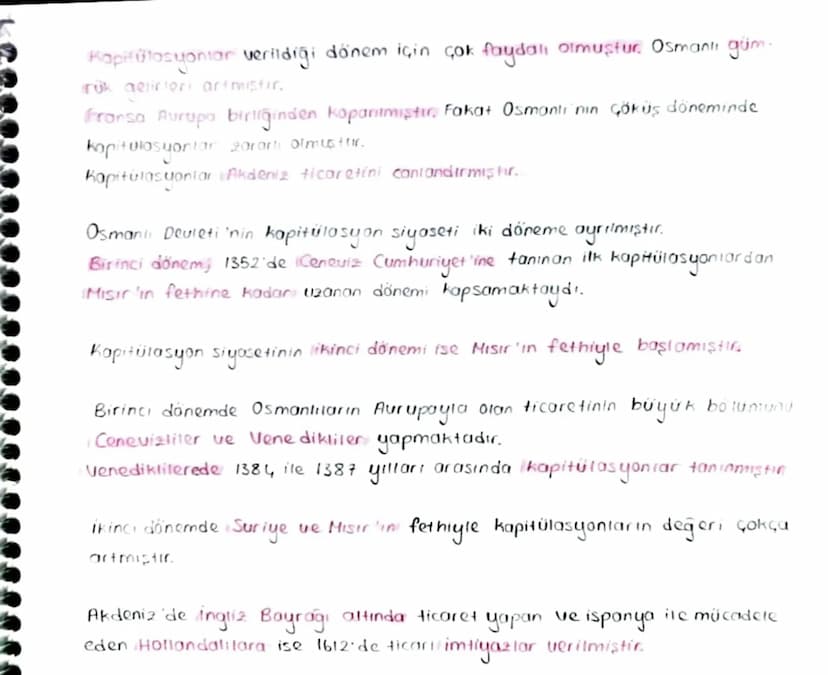 Kapitülasyonlar verildiği dönem için çok faydalı olmuştur. Osmanlı güm-
rük gelirleri artmıştır.
Fransa Avrupa birliğinden koparılmıştır. Fakat Osmanlı'nın çöküş döneminde
kapitülasyonlar zararlı olmuştur.
Kapitülasyonlar Akdeniz ticaretini canlandırmıştır.
Osmanlı Devleti'nin kapitülasyon siyaseti iki döneme ayrılmıştır.
Birinci dönem; 1352'de Ceneviz Cumhuriyet'ine tanınan ilk kapitülasyonlardan
Mısır'ın fethine kadar uzanan dönemi kapsamaktaydı.
Kapitülasyon siyasetinin ikinci dönemi ise Mısır'ın fethiyle başlamıştır.
Birinci dönemde Osmanlıların Avrupayla olan ticaretinin büyük bölümünü
Cenevizliler ve Venedikliler yapmaktadır.
Venediklilerede 1384 ile 1387 yılları arasında kapitülasyonlar tanınmıştır
İkinci dönemde Suriye ve Mısır'ın fethiyle kapitülasyonların değeri çokça
artmıştır.
Akdeniz'de İngliz Bayrağı altında ticaret yapan ve ispanya ile mücadele
eden Hollandalılara ise 1612'de ticari imtiyazlar verilmiştir.